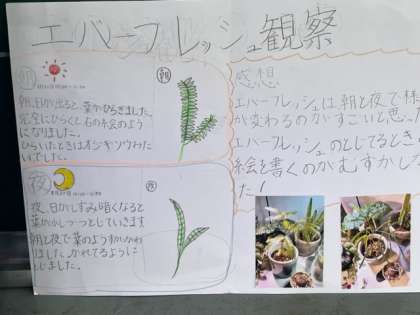 エバーフレッシュ観察
朝
朝、日が出ると葉がひらきました。
完全にひらくと右の絵のよう
になりました。
ひらいたときはオジギソウみた
いでした。
朝
夜
夜、日がしずみ暗くなると
葉がしっとしていきます
朝と夜で葉のようすがかわ
りました。かれてるように
とじました。
夜
感想
エバーフレッシュは朝と夜で様
が変わるのがすごいと思った
エバーフレッシュのとじてるとき
絵を書くのがむずかし
た！